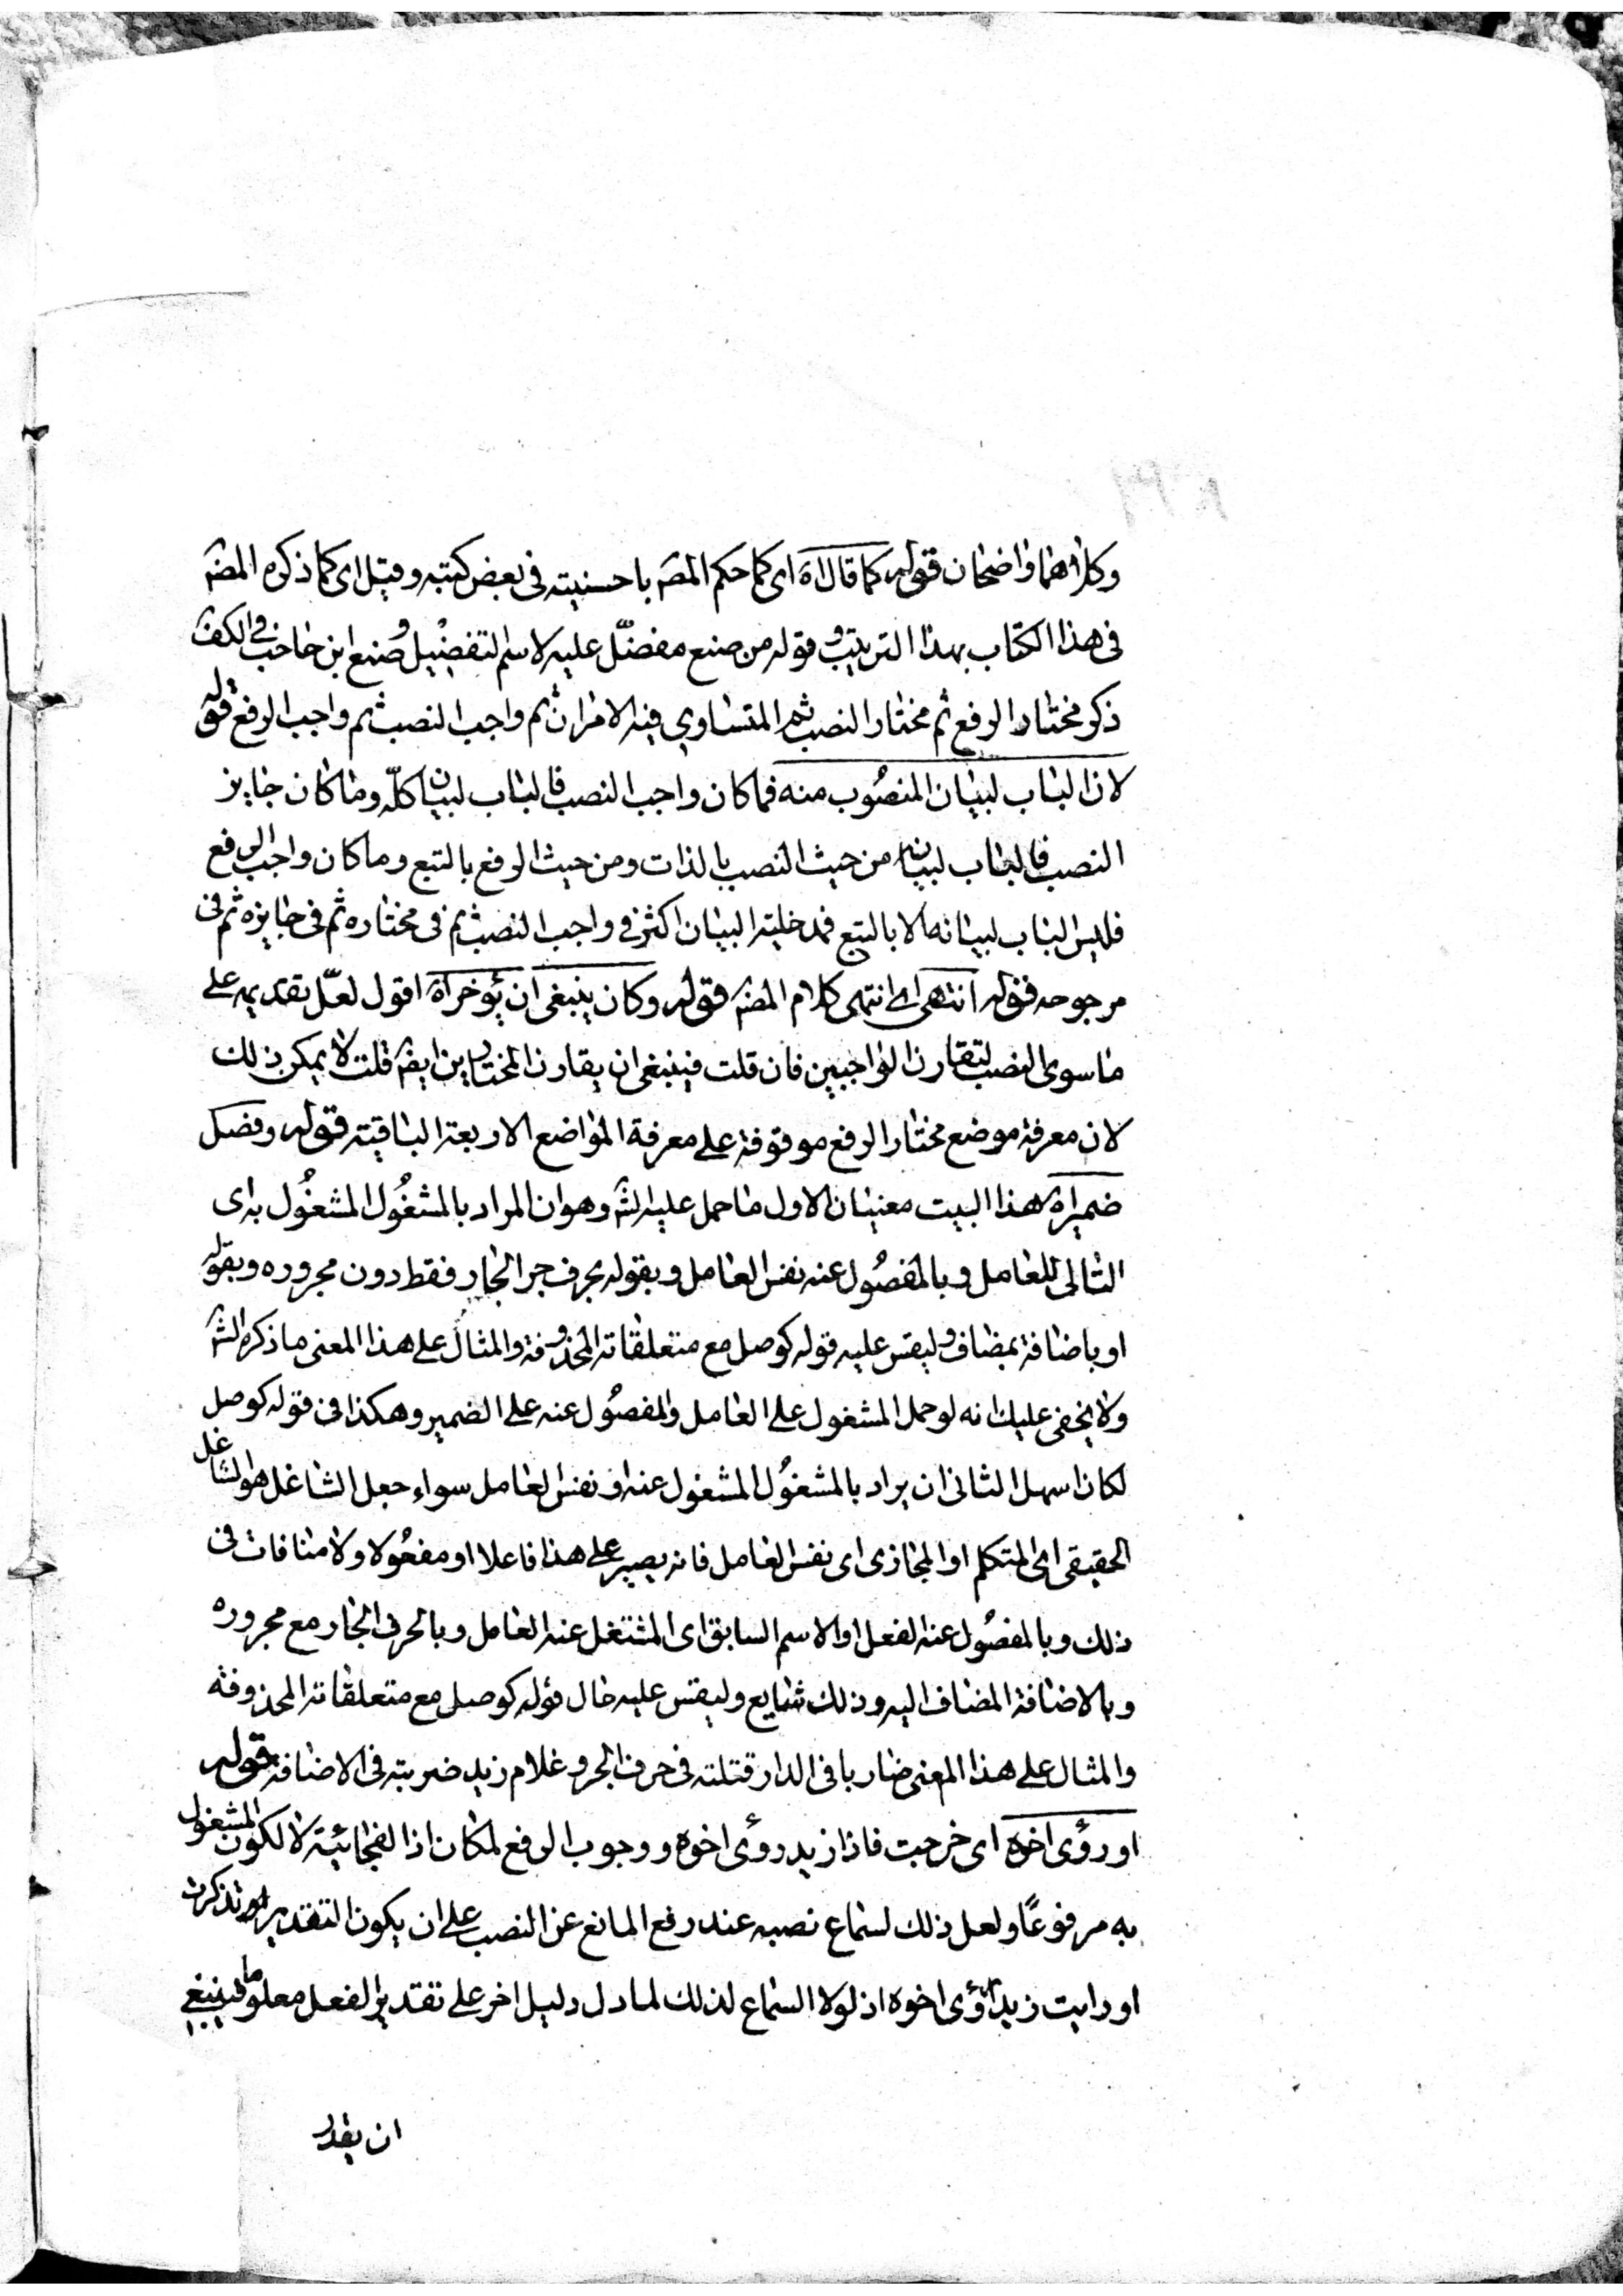 وكلاهما واضحان قوله كما قال اه اى كما حكم المصه باحسنيته فى بعض كتبه وقيل اى كما ذكره المصه
فى هذا الكتاب بهذا الترتيب وقوله من صنع مفضّل عليه لاسم التفضيل وصنع ابن حاجب فى الكفه
ذكر مختار الرفع ثم مختار النصب ثم المتساوى فيه الامران ثم واجب النصب ثم واجب الرفع قوله
لان الباب لبيان المنصُوب منه فما كان واجب النصب فالباب لبيان كلّه وما كان جايز
النصب فالباب لبيانه من حيث النصب بالذات ومن حيث الرفع بالتبع وما كان واجب الرفع
فليس الباب لبيانه الا بالتبع فمدخلية البيان اكثر فى واجب النصب ثم فى مختاره ثم فى جايزه ثم فى
مرجوحه قوله انتهى اى انتهى كلام المصه قوله وكان ينبغى ان يؤخر اه اقول لعلّ تقديمه على
ما سوى النصب لتقارن الواجبين فان قلت فينبغى ان يقارن المختارين ايضه قلت لا يمكن ذلك
لان معرفة موضع مختار الرفع موقوفة على معرفة المواضع الاربعة الباقية قوله وفصل
ضمير اه لهذا البيت معنيان الاول ما حمل عليه الشه وهو ان المراد بالمشغُول المشغُول به اى
التالى للعامل وبالمفصُول عنه نفس العامل وبقوله بحرف جر الجار فقط دون مجروره وبقوله
او باضافة بمضاف وليقس عليه قوله كوصل مع متعلقاته المحذوفة والمثال على هذا المعنى ما ذكره الشه
ولا يخفى عليك انه لو حمل المشغول على العامل والمفصُول عنه على الضمير وهكذا فى قوله كوصل
لكان اسهل الثانى ان يراد بالمشغُول المشغول عنه او نفس العامل سواء جعل الشاغل هو الشاغل
الحقيقى اى المتكلم او المجازى اى نفس العامل فانه يصير على هذا فاعلا او مفعُولا ولا منافات فى
ذلك وبالمفصُول عنه الفعل او الاسم السابق اى المشتغل عنه العامل وبالحرف الجار مع مجروره
وبالاضافة المضاف اليه وذلك شايع وليقس عليه حال قوله كوصل مع متعلقاته المحذوفة
والمثال على هذا المعنى ضاربا فى الدار قتلته فى حرف الجر وغلام زيد ضربته فى الاضافة قوله
او رؤى اخوه اى خرجت فاذا زيد رؤى اخوه ووجوب الرفع لمكان اذا الفجائية لا لكون المشغول
به مرفوعًا ولعل ذلك لسماع نصبه عند رفع المانع عن النصب على ان يكون التقدير تذكرت
او رايت زيدا رؤى اخوه اذ لولا السماع لذلك لما دل دليل اخر على تقدير الفعل معلوما فينبغى
ان يقدر